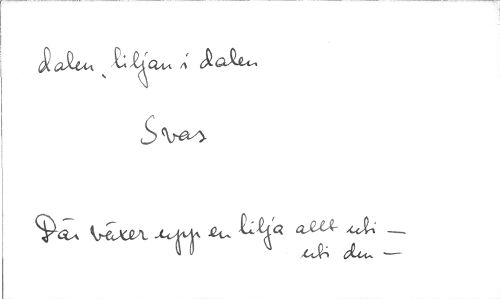 dalen, liljan i dalen
Svas
Där växer upp en lilja allt uti —
uti den —